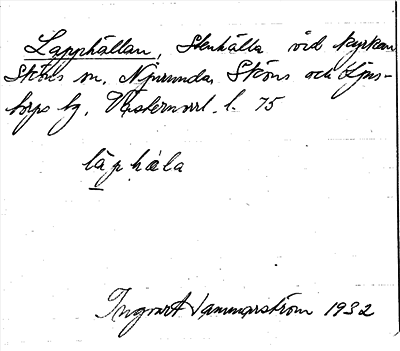 Lapphällan, Stenhälla vid kyrkan
Sköns sn. Njurunda Sköns och Ljus-
torps tg. Västernorrl. l. 75
läphäla
Ingvart Hammarström 1932